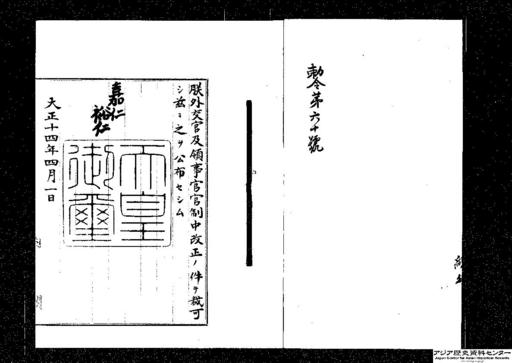 勅令第六十號
朕外交官及領事官官制中改正ノ件ヲ裁可
シ茲ニ之ヲ公布セシム
嘉仁
裕仁
天皇
御璽
大正十四年四月一日
アジア歴史資料センター
Japan Center for Asian Historical Records